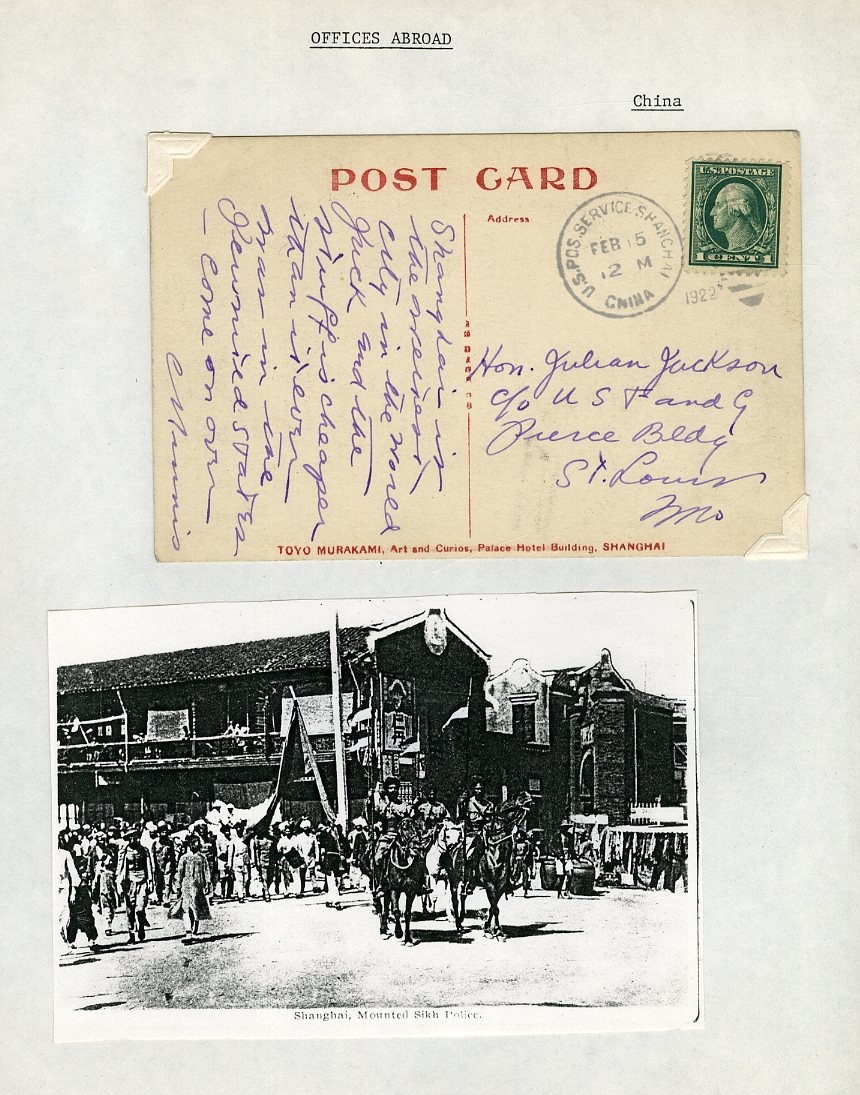 OFFICES ABROAD
China
POST CARD
Address
U.S. POSTAGE
1 CENT 1
U.S. POS. SERVICE SHANGHAI
FEB 15
12 M
CHINA
1922
Shanghai is
the
city in the world
Juck and the
stuff is cheaper
than it ever
was in the
Younited States
— Come on over
Hon. Julian Juckson
c/o U S F and G
Pierce Bldg
St. Louis
Mo
TOYO MURAKAMI, Art and Curios, Palace Hotel Building, SHANGHAI
Shanghai, Mounted Sikh Police.